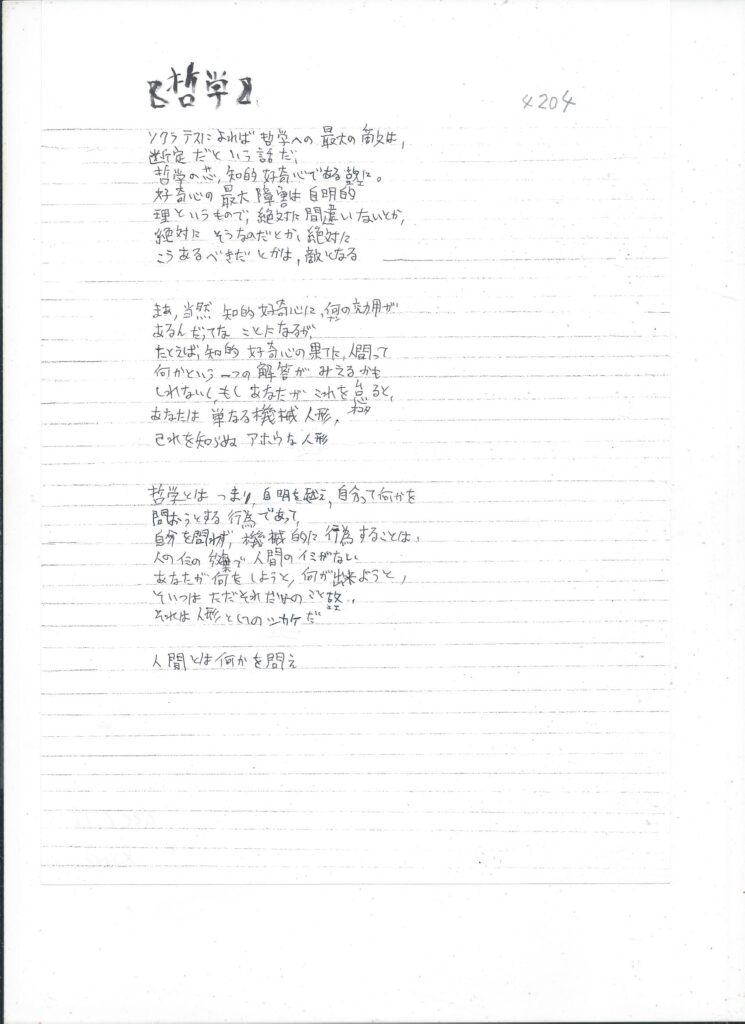 【哲学】
4204
ソクラテスによれば 哲学への 最大の 敵は、
断定 だという 話だ、
哲学の芯、知的 好奇心で ある 故に。
好奇心の 最大 障害は 自明的
理というもので、絶対に 間違い ないとか、
絶対に そうなのだとか、絶対に
こう あるべきだ とかは、敵となる
まあ、当然 知的 好奇心に、何の 効用が
あるんだってな ことになるが、
たとえば、知的 好奇心の 果てに、人間って
何かという 一つの 解答が みえるかも
しれないし、もし あなたが これを 怠ると、
あなたは 単なる 機械 人形、
己れを 知らぬ アホウな 人形
哲学とは つまり、自明を 越え、自分って 何かを
問おうとする 行為で あって、
自分を 問わず、機械的に 行為 することは、
人の で 人間の イミがない
あなたが 何を しようと、何が 出来ようと、
そいつは ただ それだけの こと 故、
それは 人形 としての シカケだ
人間とは 何かを 問え